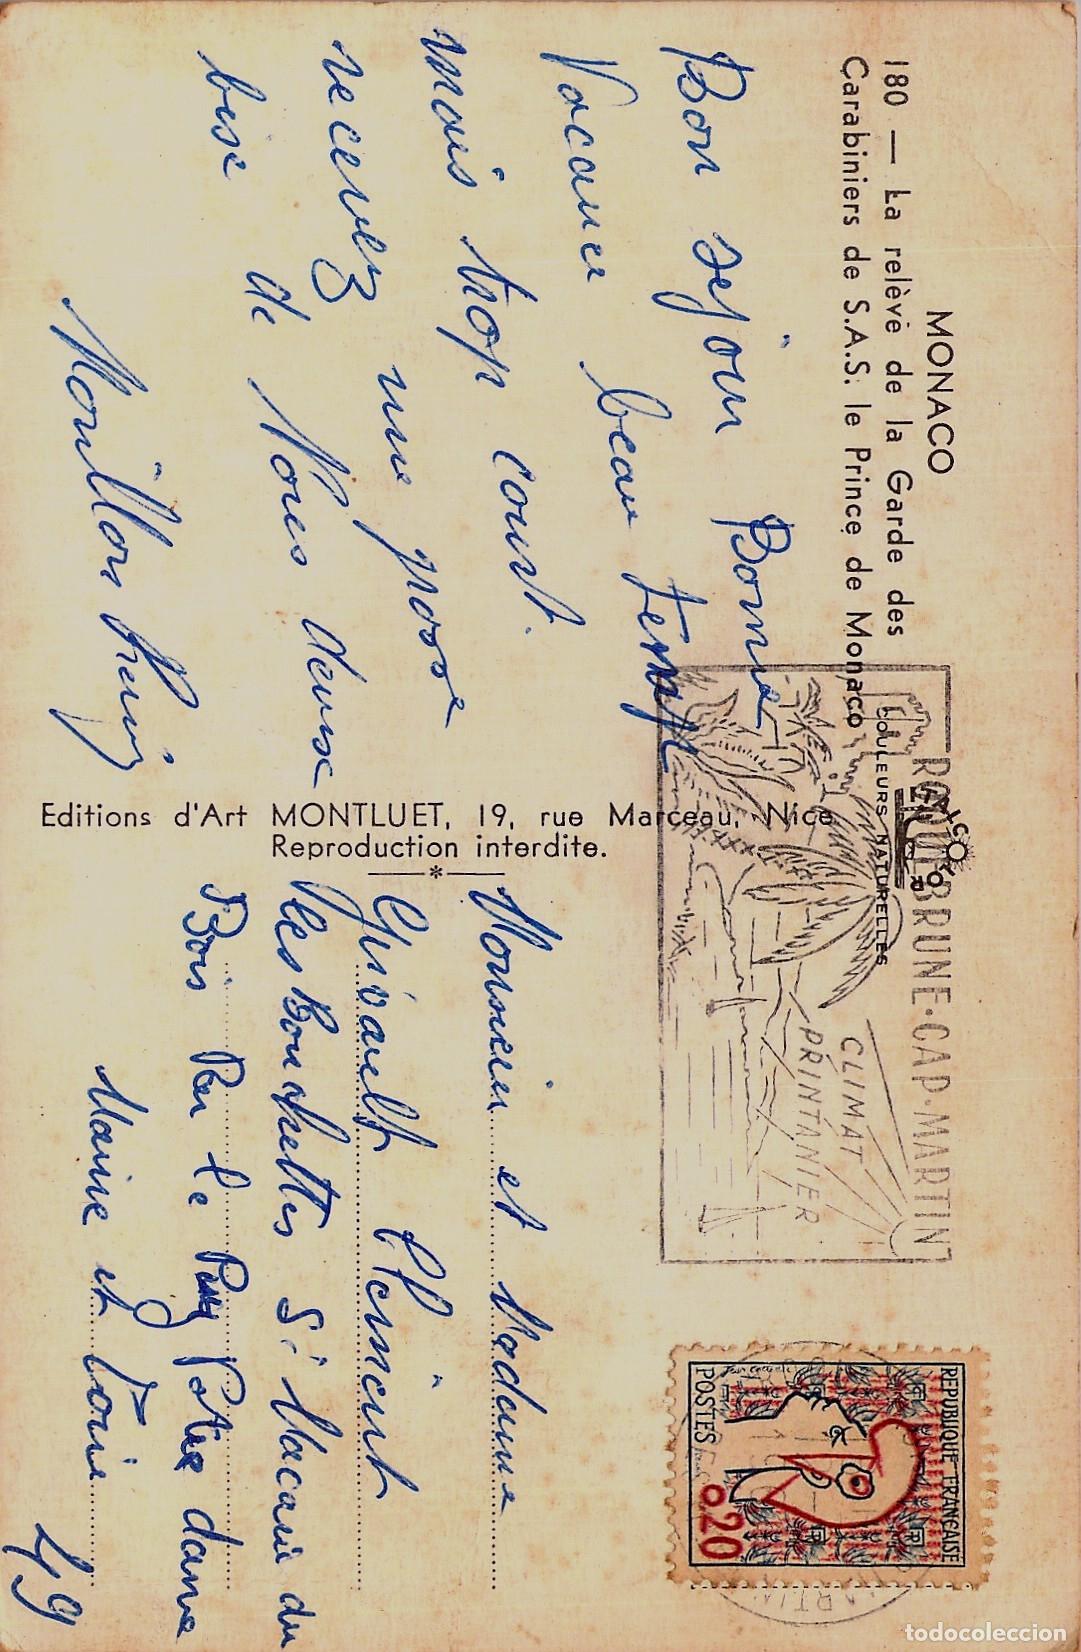 MONACO
180 — La relève de la Garde des
Carabiniers de S.A.S. le Prince de Monaco
Bon sejour Bonne
Vacance beau Temp
mais trop court.
recevez une grosse
bise de Nous deuse
Mouillon
Editions d'Art MONTLUET, 19, rue Marceau, Nice
Reproduction interdite.
COULEURS NATURELLES
ROQUEBRUNE-CAP-MARTIN
CLIMAT
PRINTANIER
REPUBLIQUE FRANCAISE
POSTES
0,20
Monsieur et Madame
Givault Clement
les Bouchettes St Macaire du
Bois Par le Puy Notre dame
Maine et Loire
49
todocoleccion